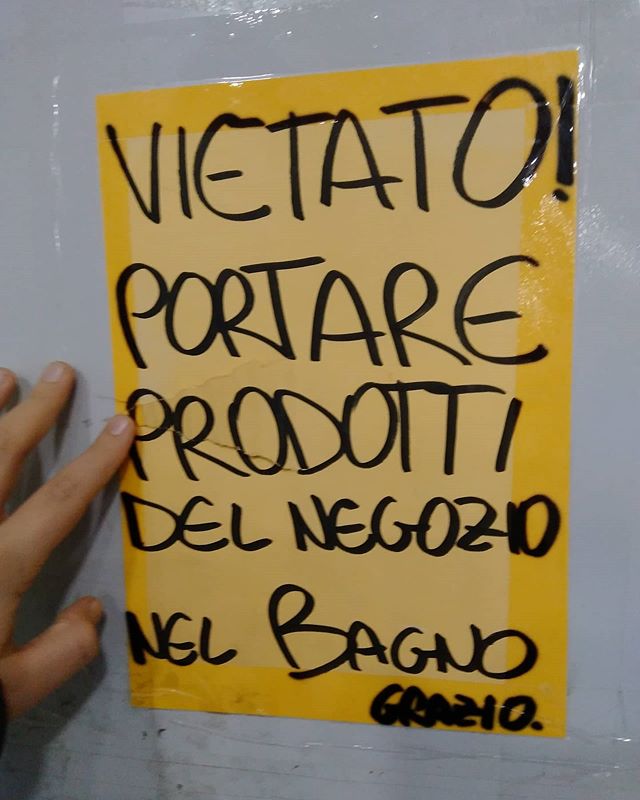 VIETATO!
PORTARE
PRODOTTI
DEL NEGOZIO
NEL BAGNO
GRAZIO.